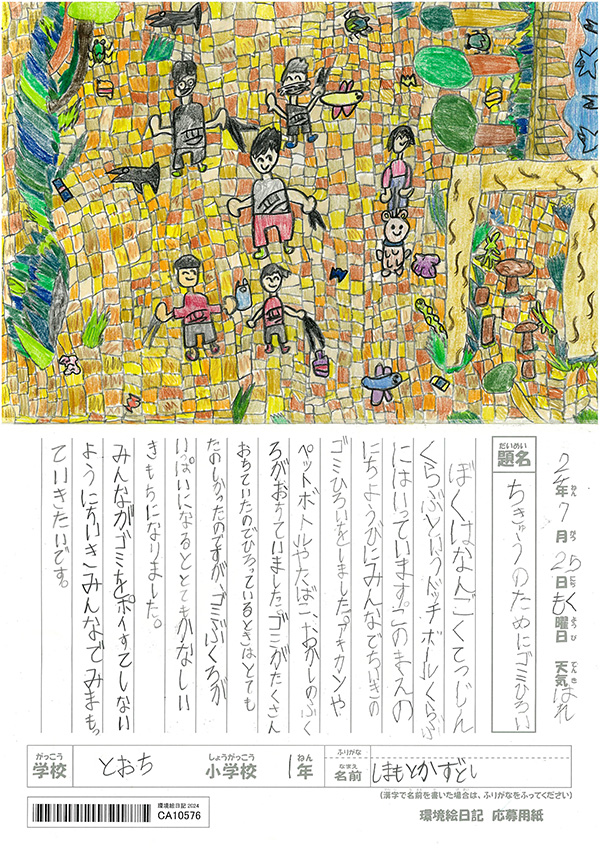 だいめい
題名
ちきゅうのためにゴミひろい
7月25日もく曜日 天気はれ
ねん がつ にち ようび てんき
ぼくはなんごくてつじん
くらぶというドッチボールくらぶ
にはいっています。このまえの
にちようびにみんなでちいきの
ゴミひろいをしました。アキカンや
ペットボトルやたばこ、おかしのふく
ろがおちていました。ゴミがたくさん
おちていたのでひろっているときはとても
たのしかったのですが、ゴミぶくろが
いっぱいになるととてもかなしい
きもちになりました。
みんながゴミをポイすてしない
ようにちいきみんなでみまもっ
ていきたいです。
がっこう
学校
とおち
しょうがっこう
小学校
1年
ねん
ふりがな
なまえ
名前
しまもとかずとし
(漢字で名前を書いた場合は、ふりがなをふってください)
環境絵日記 2024
CA10576
環境絵日記 応募用紙